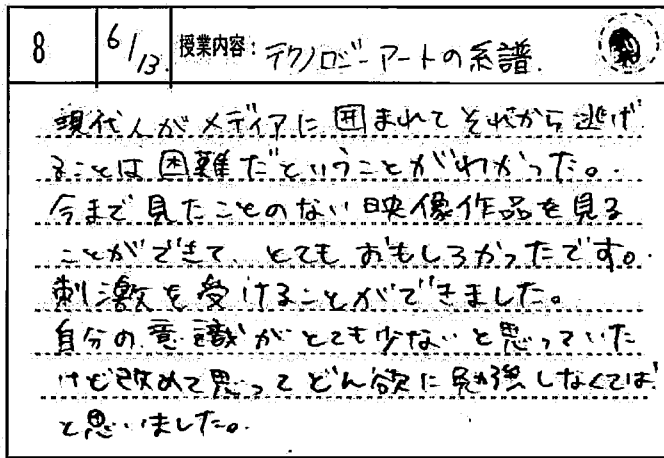 8 6/13. 授業内容: テクノロジーアートの系譜.
現代人がメディアに囲まれてそれから逃げ
ることは困難だということがわかった。
今まで見たことのない映像作品を見る
ことができて、とてもおもしろかったです。
刺激を受けることができました。
自分の意識がとても少ないと思っていた
けど改めて思ってどん欲に勉強しなくては
と思いました。